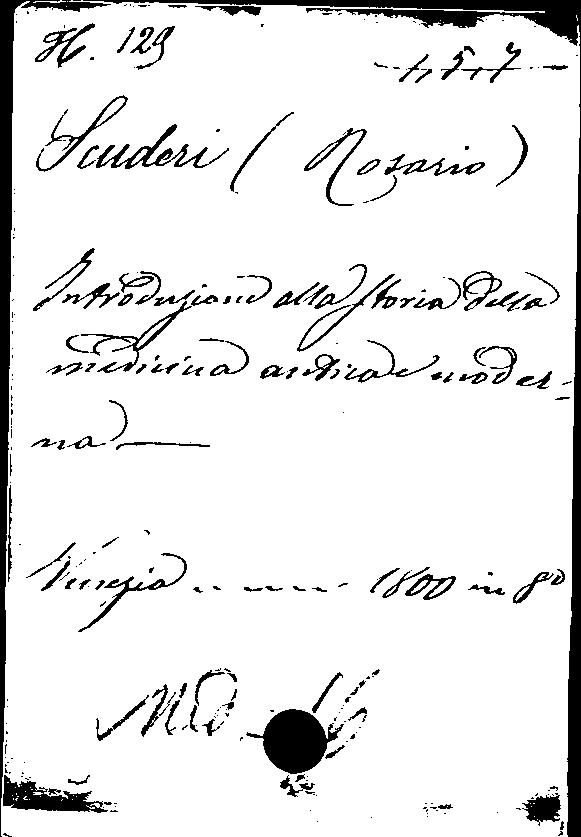 H. 129
1, 5, 7
Scuderi ( Rosario )
Introduzione alla storia della
medicina antica e moder-
na
Venezia ........ 1800 in 8º
Med. 16